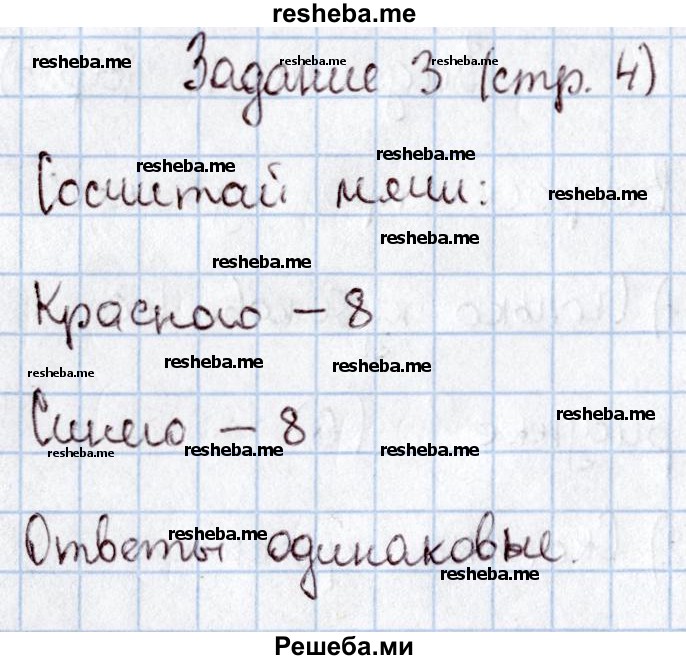 resheba.me
resheba.me resheba.me resheba.me
Задание 3 (стр. 4)
resheba.me resheba.me
Сосчитай мячи: resheba.me
resheba.me resheba.me
Красного – 8
resheba.me resheba.me resheba.me
Синего – 8 resheba.me
resheba.me resheba.me resheba.me
Ответы одинаковые.
resheba.me
resheba.me
Решеба.ми